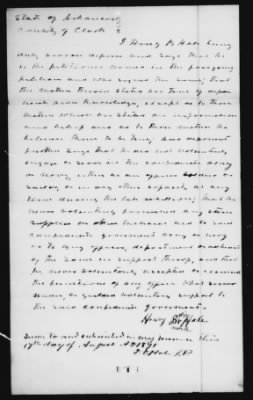 State of Arkansas
County of Clark
I Henry B Hale being
duly sworn depose and says that he
is the petitioner named in the foregoing
petition and who signed the same; that
the matters therein stated are true of
own knowledge, except as to those
matters which are stated on information
and belief and as to those matters he
believes them to be true; and deponent
further says that he did not voluntarily
engage or serve in the confederate army
or navy, either as an officer soldier or
sailor, or in any other capacity at any
time during the late rebellion; that he
never voluntarily furnished any stores
supplies or other to said
confederate government army or navy
or to any officer, department or
of the same in support thereof, and that
he never voluntarily accepted or exercised
the functions of any office
under, or yielded voluntary support to
the said confederate government.
Henry B Hale
his mark
Sworn to and subscribed in my presence this
17th day of August AD 1871
J P